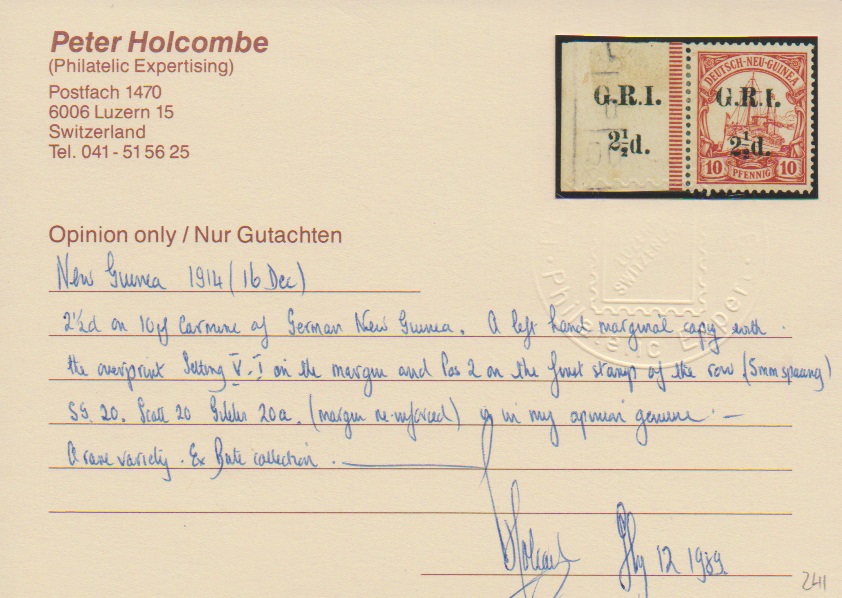 Peter Holcombe
(Philatelic Expertising)
Postfach 1470
6006 Luzern 15
Switzerland
Tel. 041-51 56 25
G.R.I.
2½d.
DEUTSCH-NEU-GUINEA
G.R.I.
2½d.
10 PFENNIG 10
Opinion only / Nur Gutachten
New Guinea 1914 (16 Dec)
2½d on 10pf Carmine of German New Guinea. A left hand marginal copy with
the overprint Setting V-I on the margin and Pos 2 on the first stamp of the row (5mm spacing)
SG. 20. Scott 20 Gibbs 20a. (margin re-inforced) is in my opinion genuine. —
A rare variety. Ex Bate collection.
LUZERN
SWITZERLAND
Philatelic Expert
Holcombe 12 1989
241